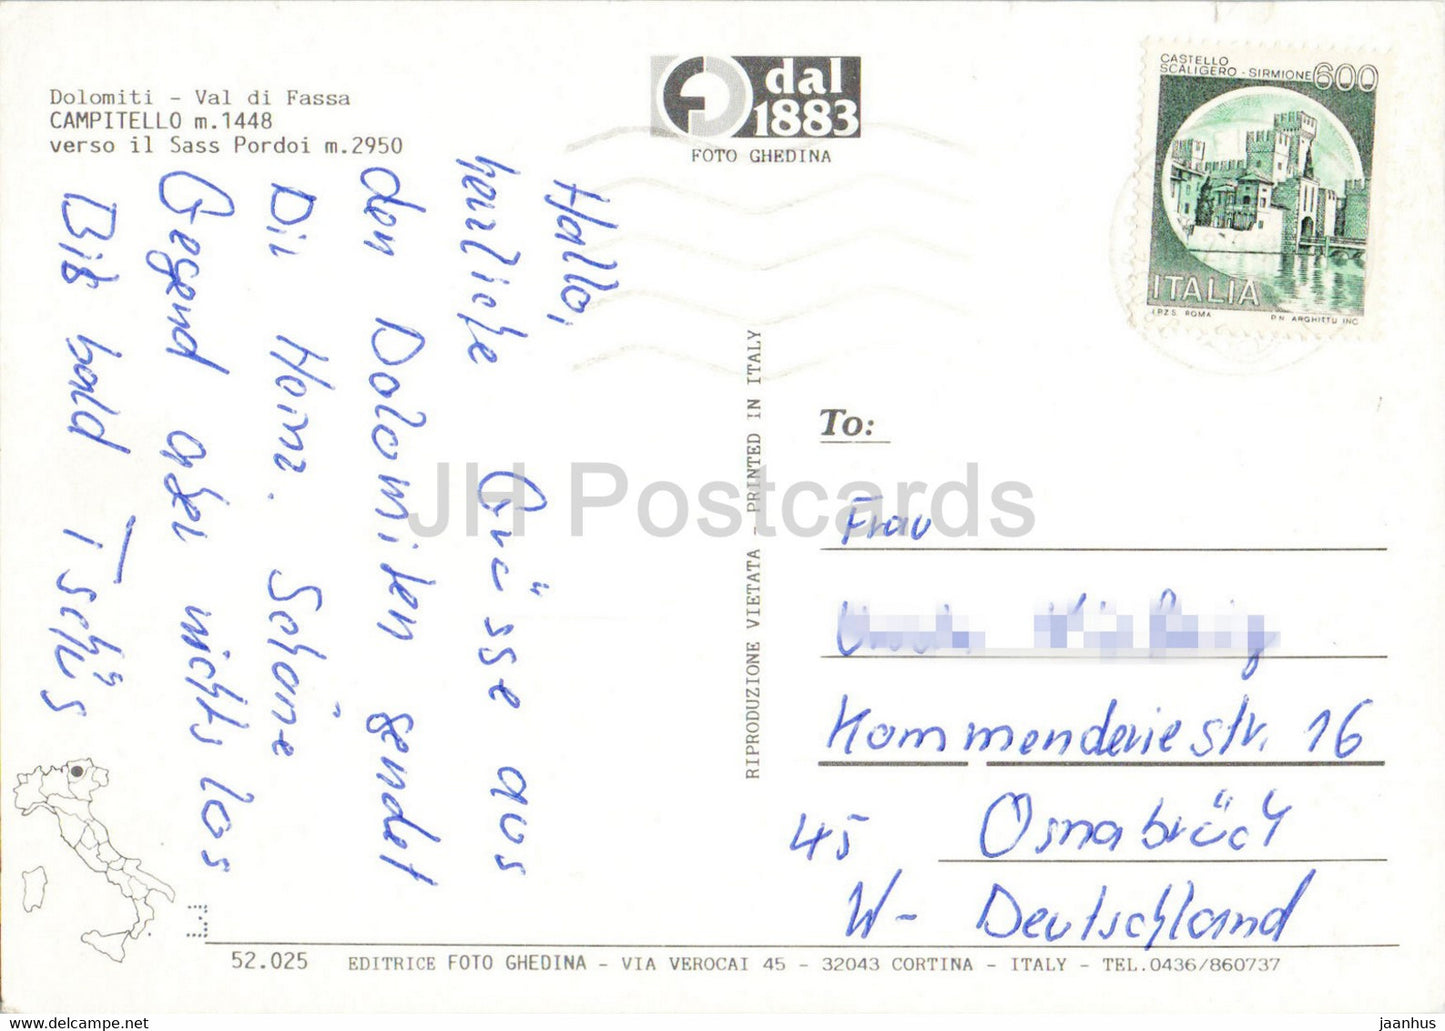 Dolomiti - Val di Fassa
CAMPITELLO m.1448
verso il Sass Pordoi m.2950
dal
1883
FOTO GHEDINA
CASTELLO
SCALIGERO - SIRMIONE 600
ITALIA
I.P.Z.S. ROMA
P.N. ARGHITTU INC.
Hallo,
herzliche Grüsse aus
den Dolomiten sendet
Dir Heinz. Schöne
Gegend aber nichts los
Bis bald Tschüs
RIPRODUZIONE VIETATA - PRINTED IN ITALY
To:
Frau
Kommenderiestr. 16
45 Osnabrück
W- Deutschland
52.025 EDITRICE FOTO GHEDINA - VIA VEROCAI 45 - 32043 CORTINA - ITALY - TEL.0436/860737
JH Postcards
www.delcampe.net
jaanhus